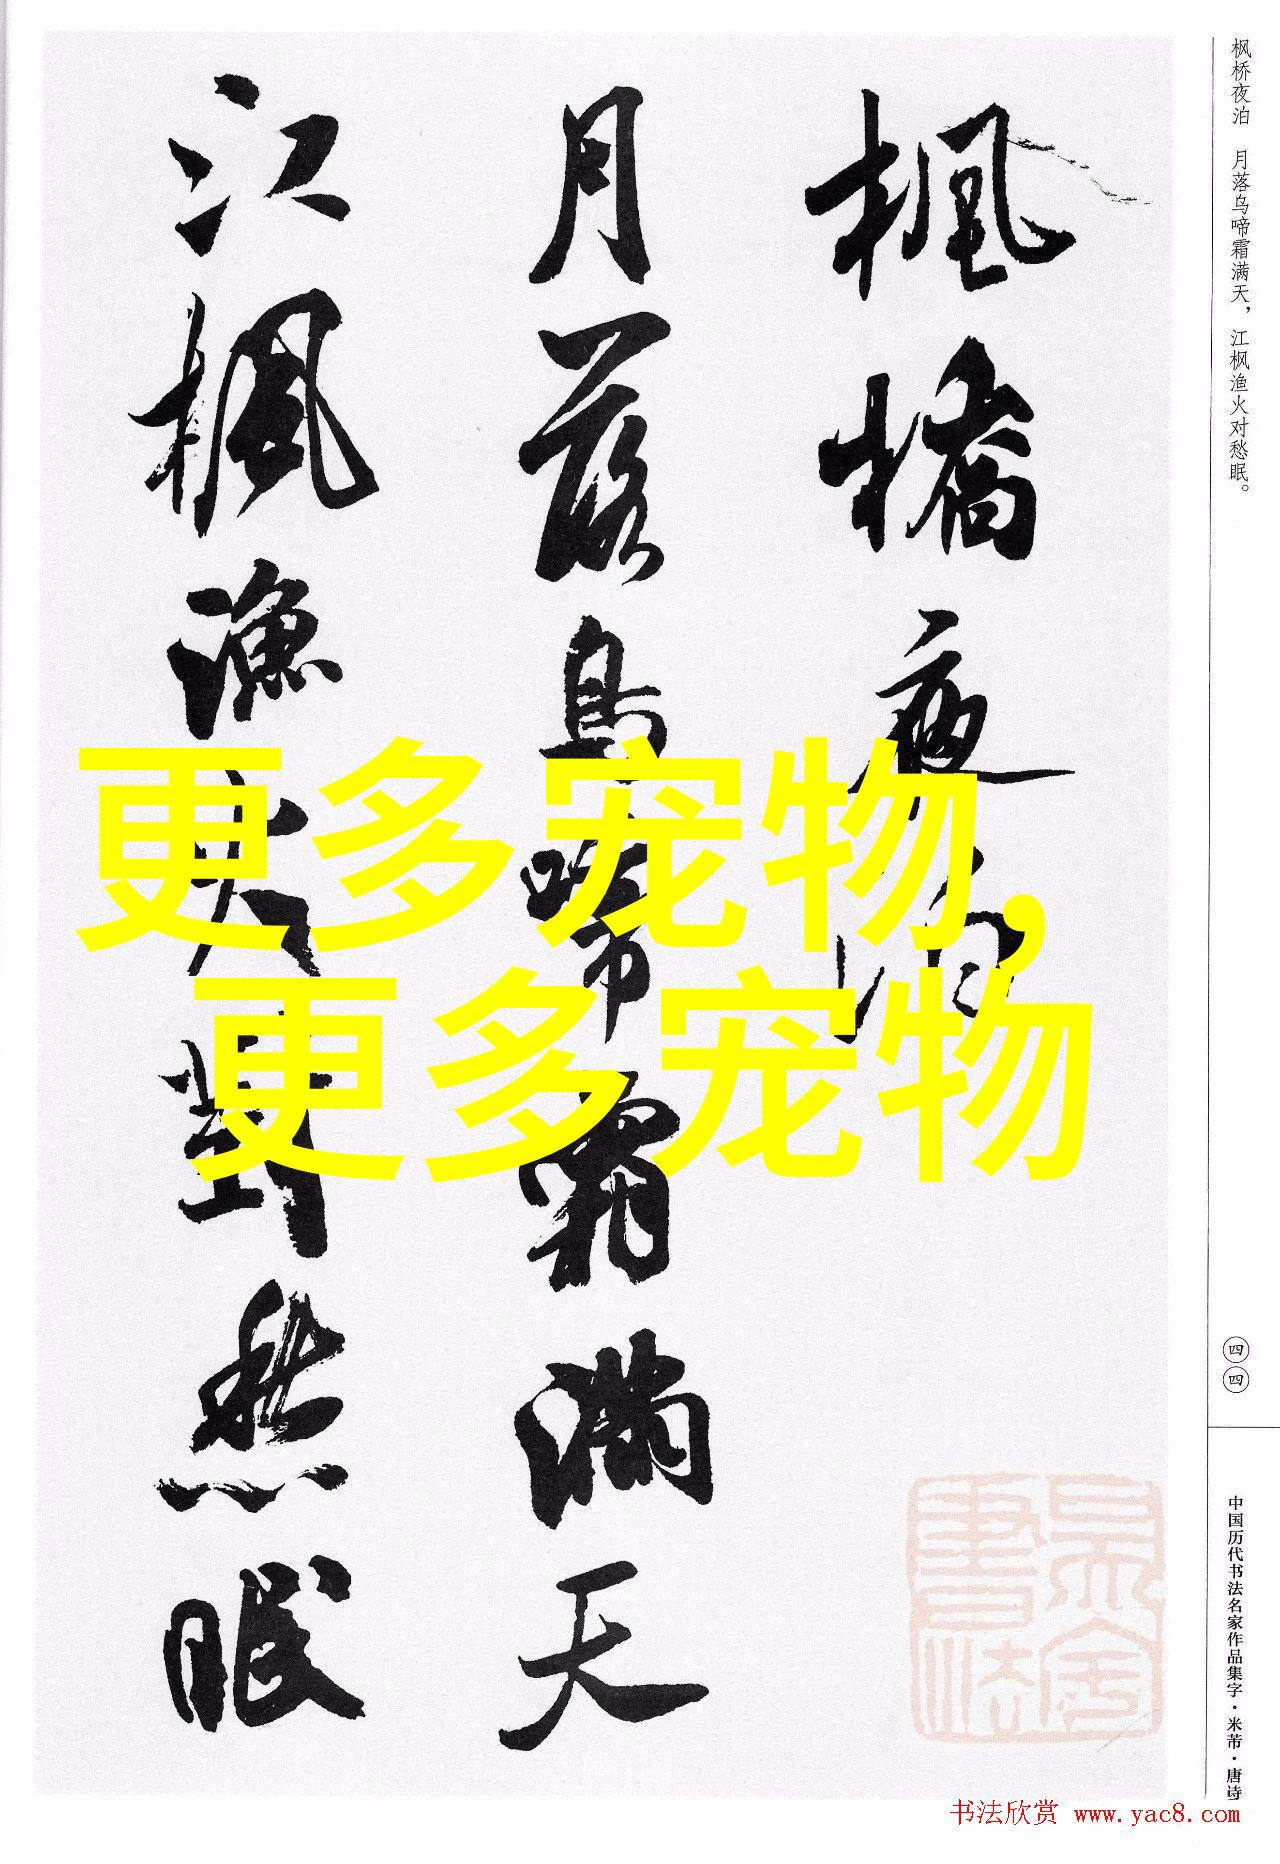 枫桥夜泊　月落乌啼霜满天，江枫渔火对愁眠。
楓橋夜泊
月落烏啼霜滿天
江楓漁火對愁眠
更多宠物,
更多宠物
四四
中国历代书法名家作品集字·米芾·唐诗
书法欣赏 www.yac8.com